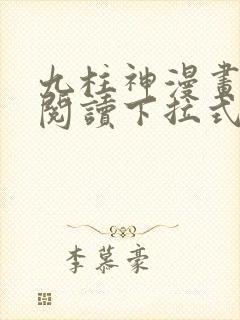 九柱神漫畫
閱讀下拉式
李慕豪